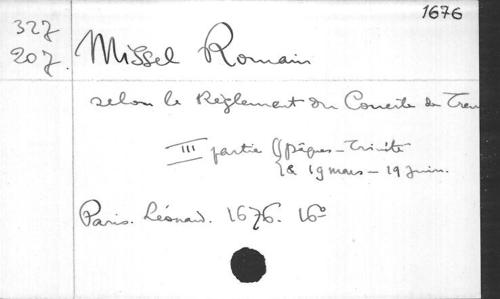 1676
327
207.
Missel Romain
selon le Règlement du Concile de Tren
III partie (Pâques - Trinité
& 19 mars - 19 juin.
Paris. Léonard. 1676. 16°